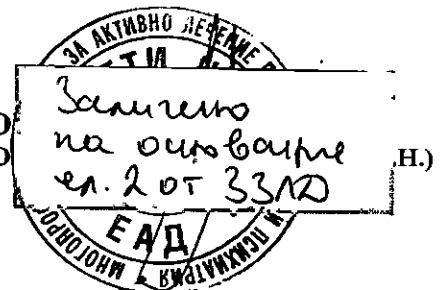 ЗА АКТИВНО ЛЕЧЕНИЕ
Заличено
на основание
чл. 2 от ЗЗЛД
Н.)
ЕАД
И ПСИХИАТРИЯ